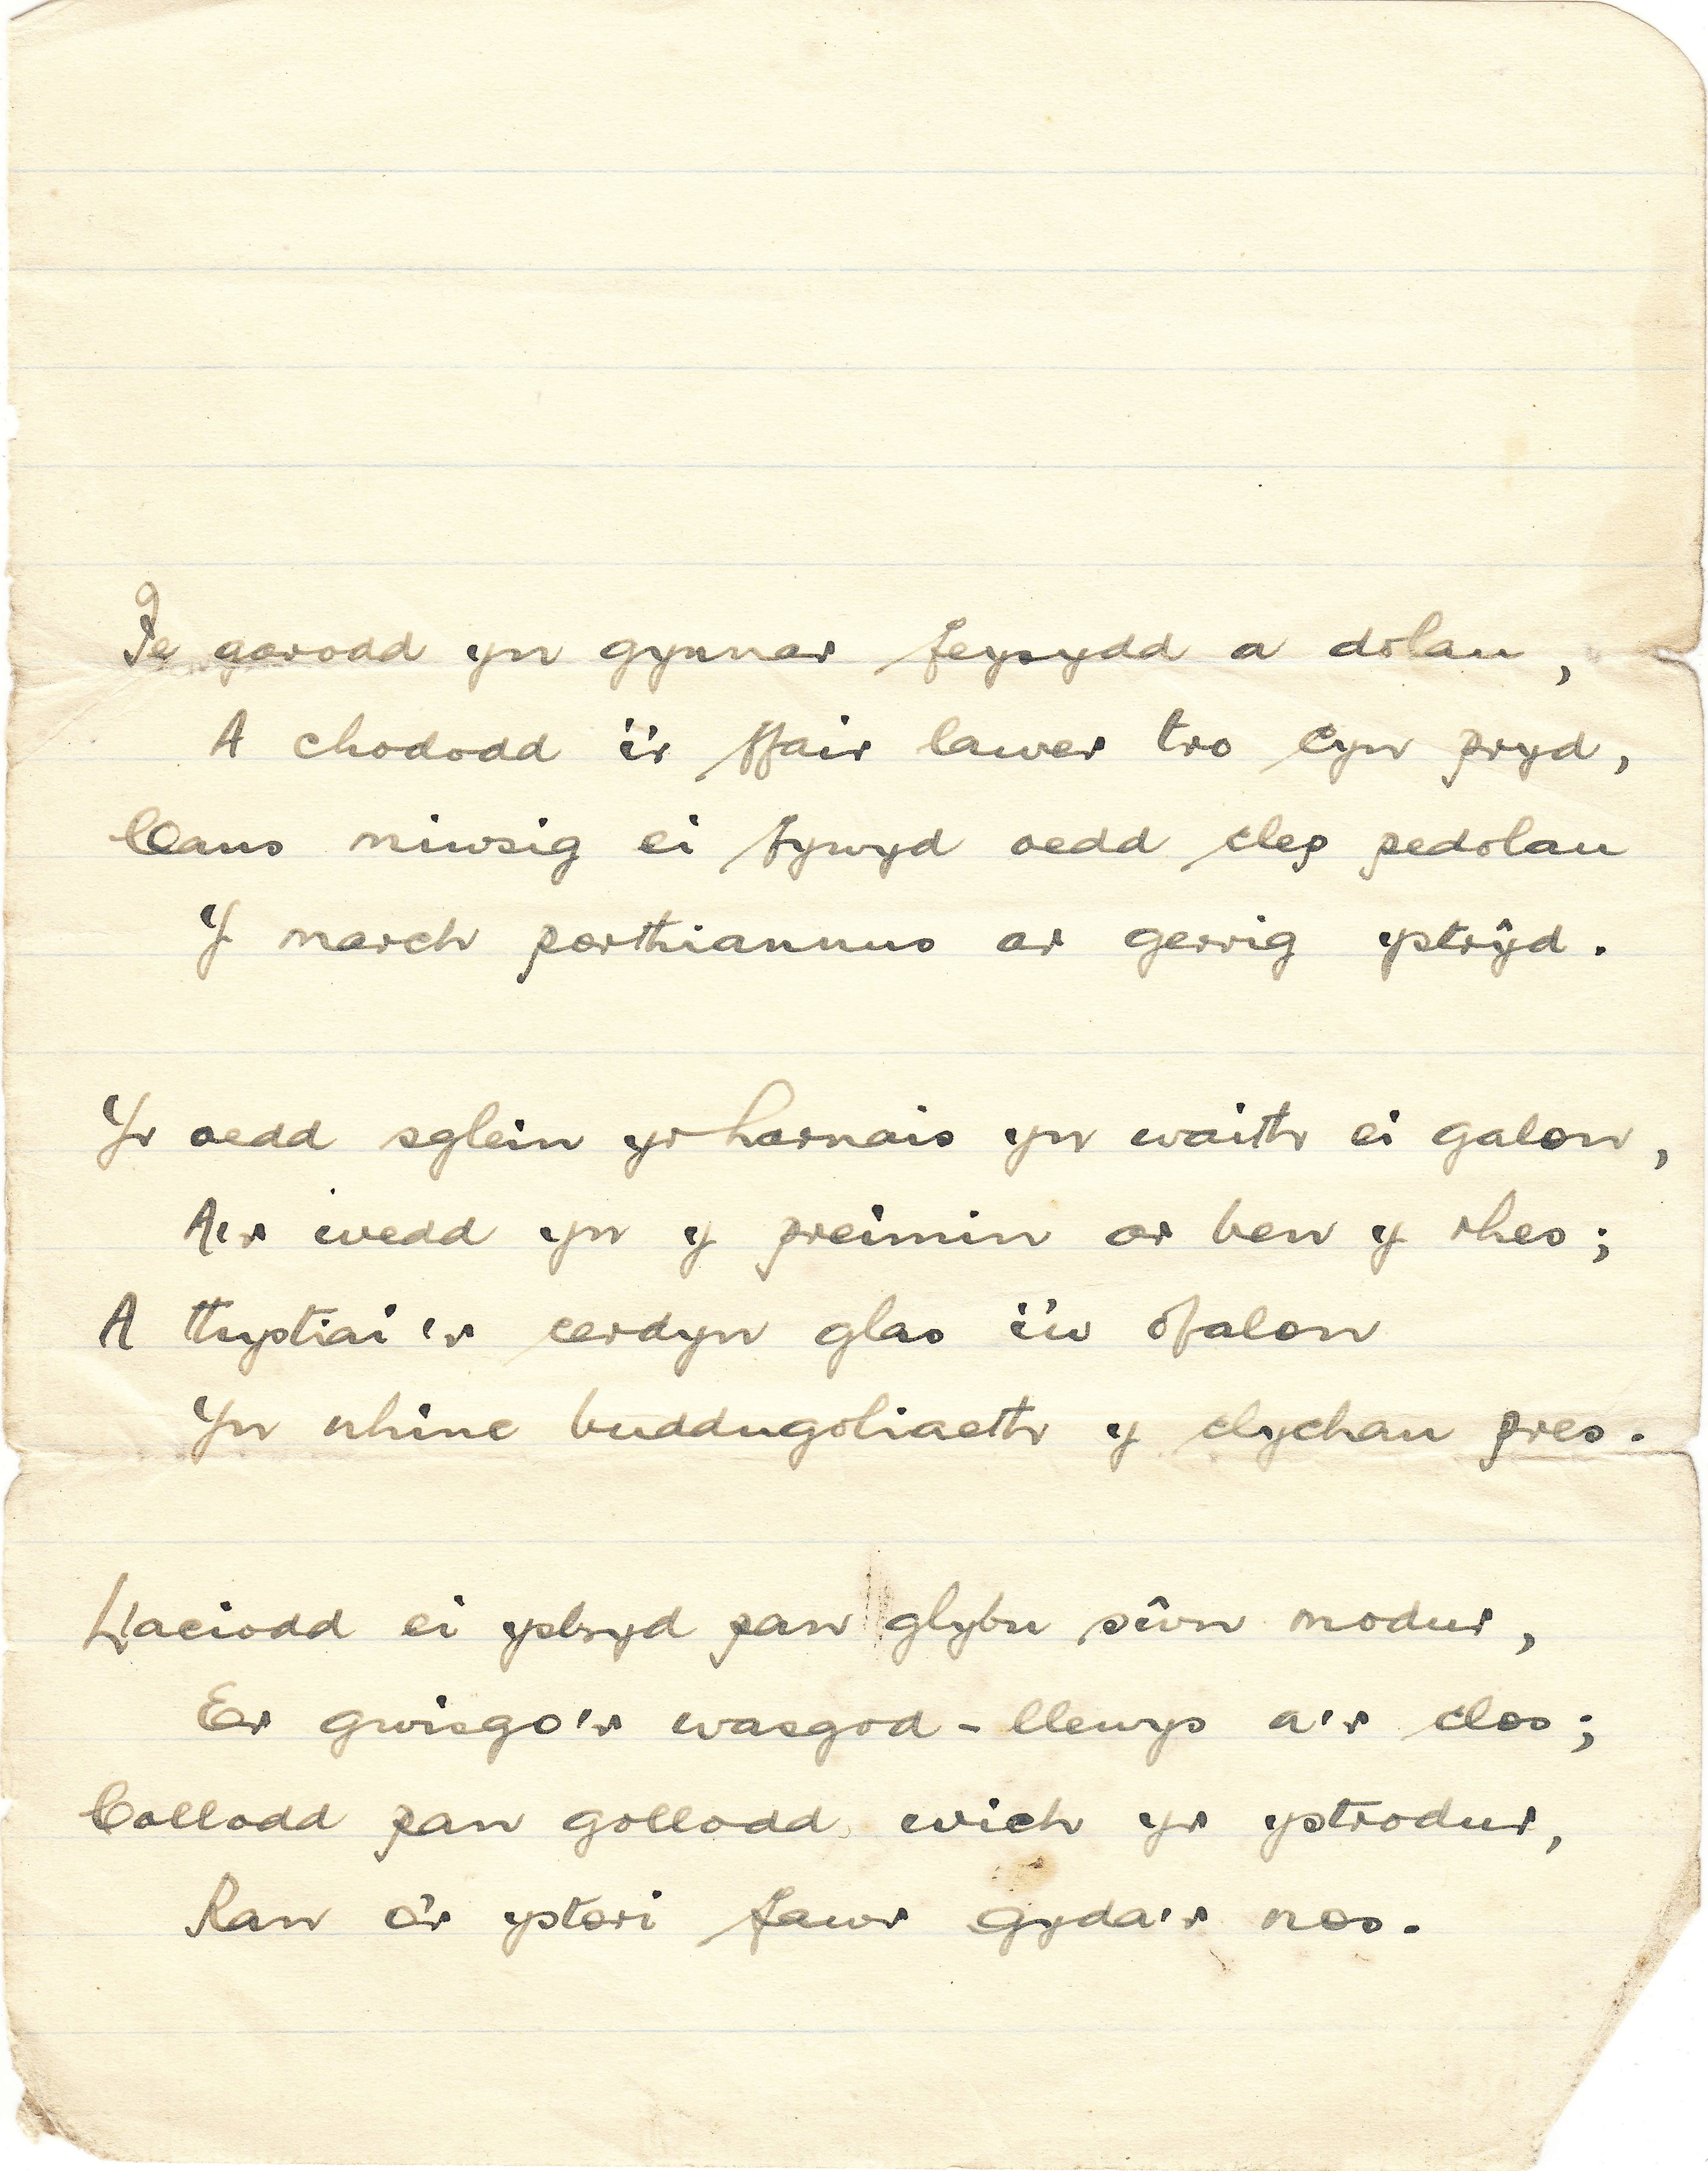 Fe garodd yn gynnar feysydd a dolau,
A chododd i'r ffair lawer tro cyn pryd,
Cans miwsig ei fywyd oedd clep pedolau
Y march porthiannus ar gerrig ystrŷd.
Yr oedd sglein yr harnais yn waith ei galon,
A'r wedd yn y preimin ar ben y rhes;
A thystiai'r cerdyn glas i'w ofalon
Yn rhinc buddugoliaeth y clychau pres.
Llaciodd ei ysbryd pan glybu sŵn modur,
Er gwisgo'r wasgod-llewys a'r clos;
Collodd pan gollodd wich yr ystrodur,
Ran o'r ystori fawr gyda'r nos.